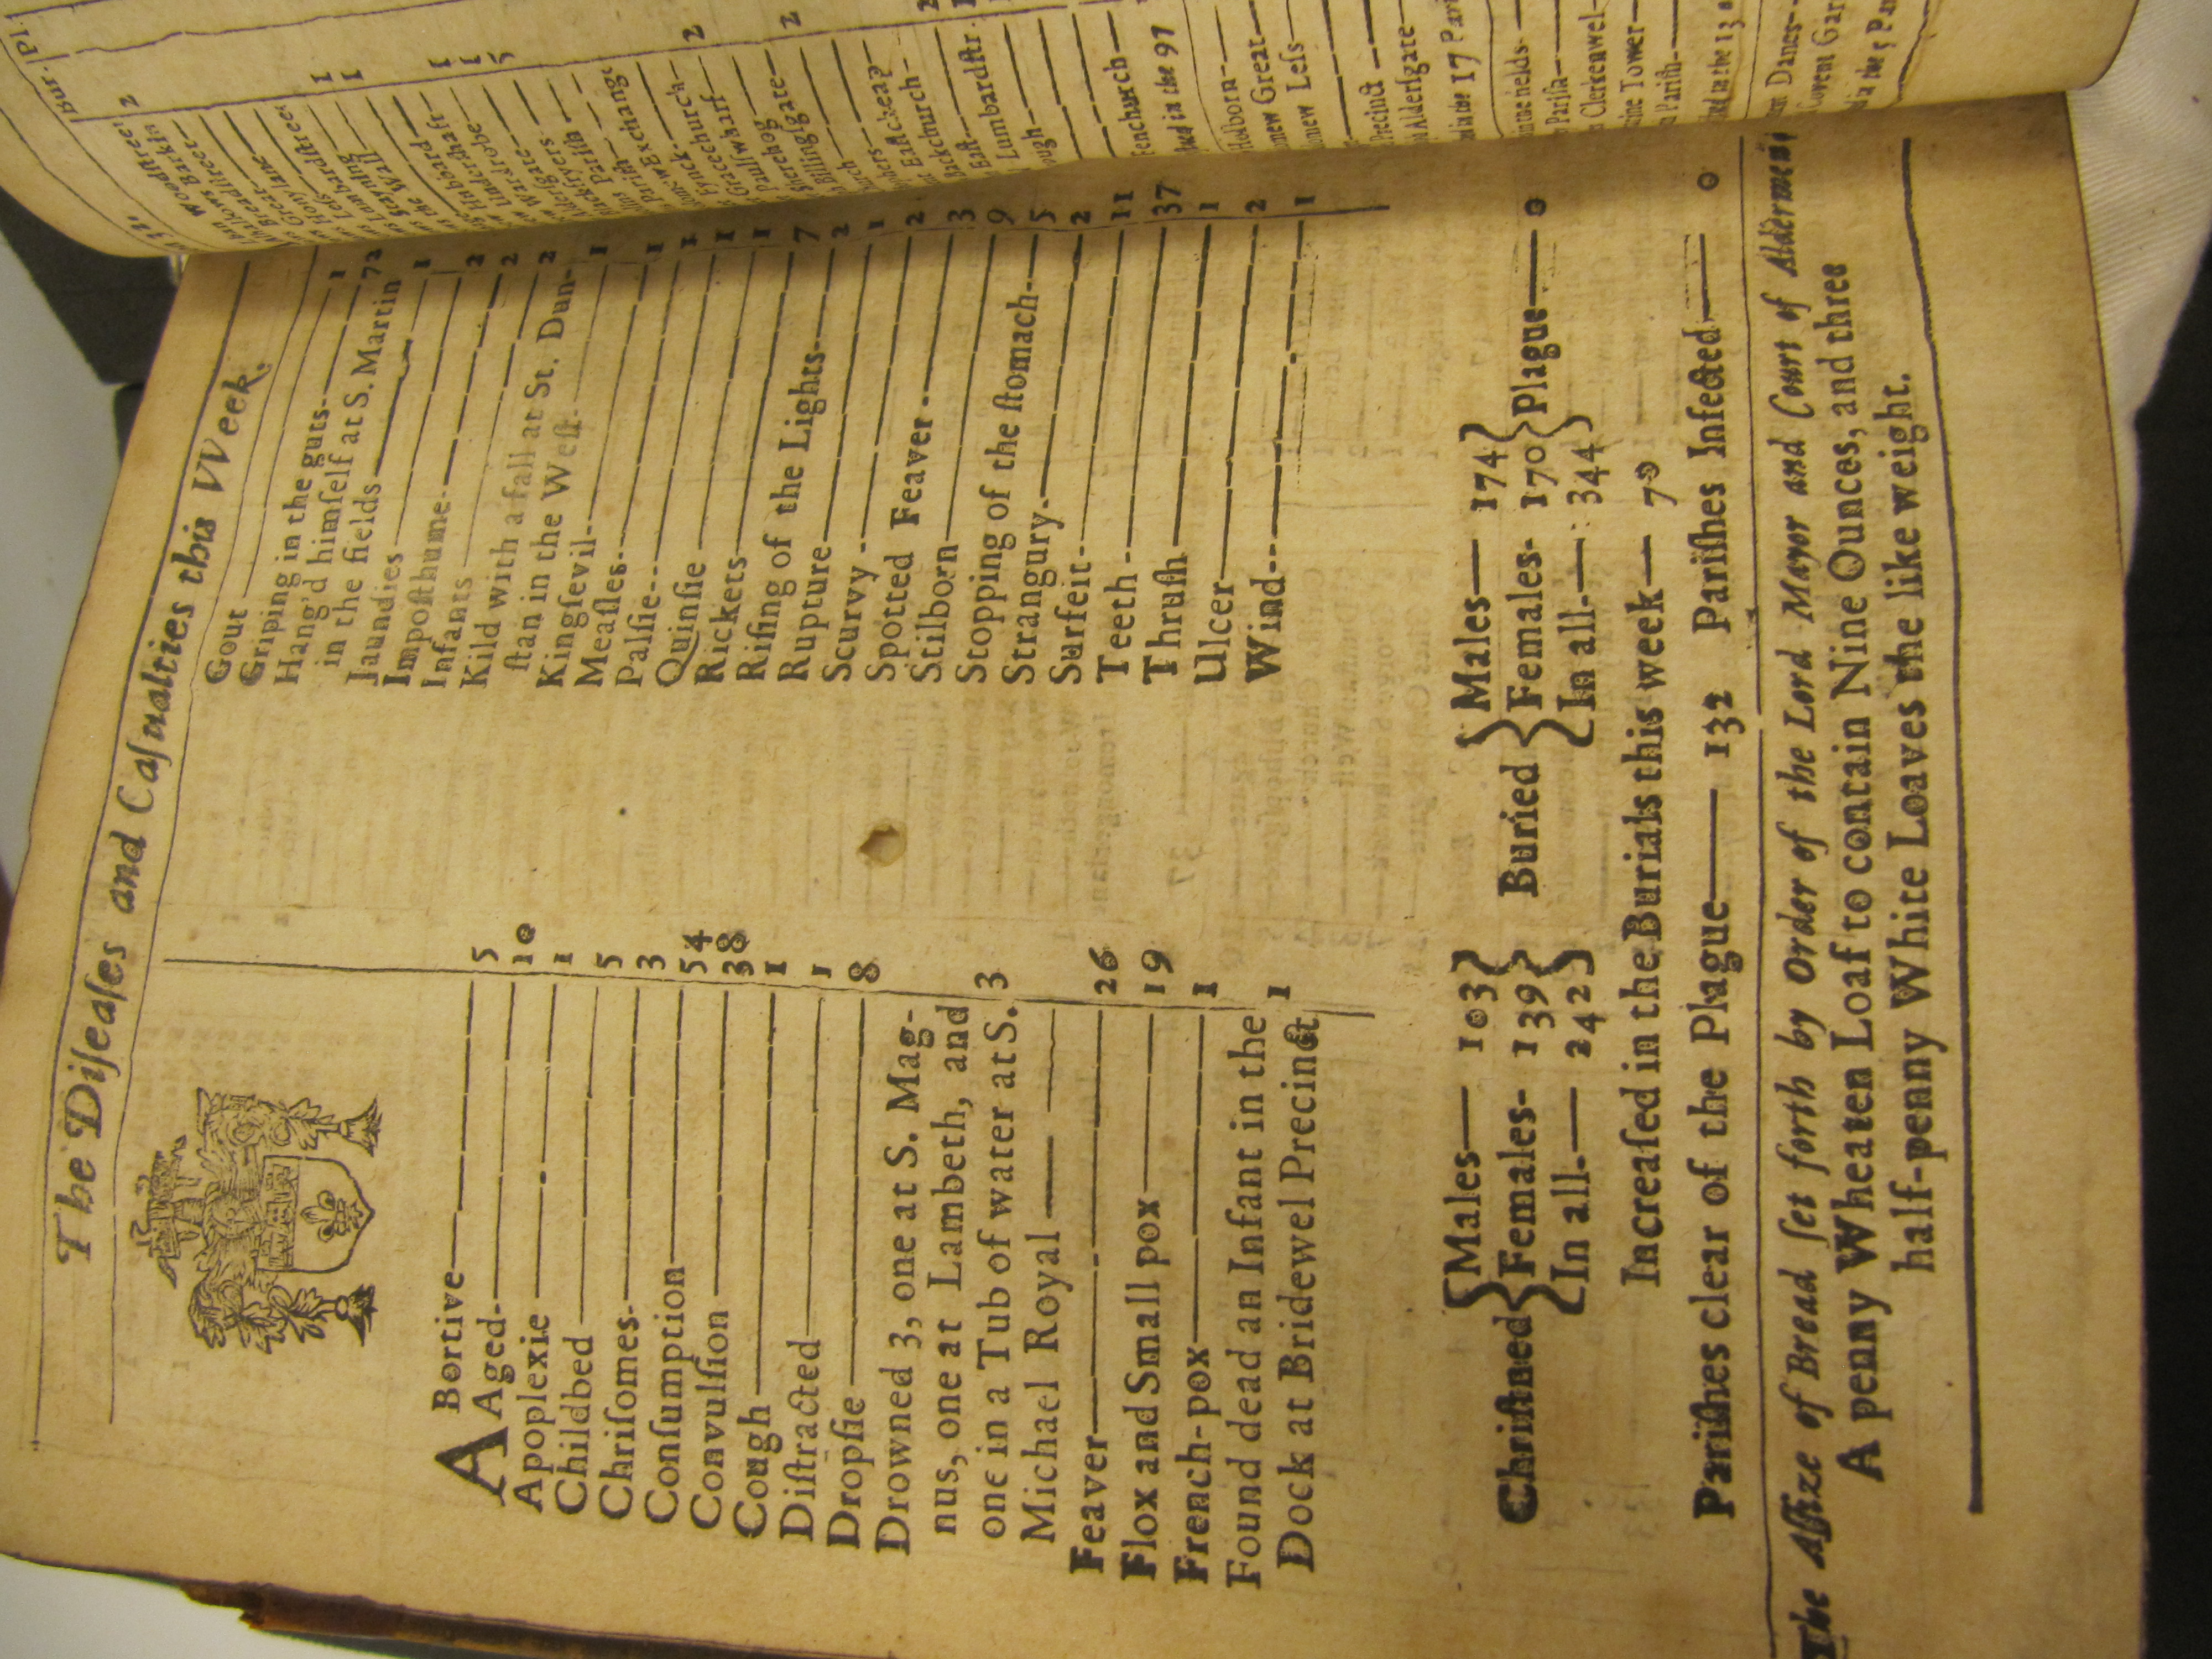 The Diſeaſes and Caſualties this VVeek.
ABortive 5
Aged 10
Apoplexie 1
Childbed 5
Chriſomes 3
Conſumption 54
Convulſion 38
Cough 1
Diſtracted 1
Dropſie 8
Drowned 3, one at S. Mag-
nus, one at Lambeth, and
one in a Tub of water at S. 3
Michael Royal
Feaver 26
Flox and Small pox 19
French-pox 1
Found dead an Infant in the
Dock at Bridewel Precinct 1
Gout 1
Griping in the guts 72
Hang'd himſelf at S. Martin
in the fields 1
Jaundies 2
Impoſthume 2
Infants 2
Kild with a fall at St. Dun-
ſtan in the Weſt 1
Kingſevil 1
Meaſles 1
Palſie 1
Quinſie 1
Rickets 7
Riſing of the Lights 2
Rupture 1
Scurvy 2
Spotted Feaver 3
Stilborn 9
Stopping of the ſtomach 5
Strangury 2
Surfeit 11
Teeth 37
Thruſh 1
Ulcer 2
Wind 1
Chriſtned { Males 103 Females 139 In all 242 }
Buried { Males 174 Females 170 In all 344 } Plague 0
Increaſed in the Burials this week 70
Pariſhes clear of the Plague 132 Pariſhes Infected 0
The Aſſize of Bread ſet forth by Order of the Lord Mayor and Court of Aldermen,
A penny Wheaten Loaf to contain Nine Ounces, and three
half-penny White Loaves the like weight.
Bur. Pl.
Woodſtreet 2
Barkin
Breadſtreet
Great
Honylane
Leſs
Lumbardſtreet 1
Staining 1
the Wall
Underſhaft 1
Wardrobe 1
5
Blackfryers
Pariſh
Exchange
Fynck
Gracechurch 2
Paulſwharf
Sherehog
Billingſgate 2
Eaſtcheap
Backchurch
Eaſt
Lumbardſtr.
Fenchurch
in the 97
Holborn
Great
Leſs
Precinct
Alderſgate
in the 17 Pari
Clerkenwel
Tower
Pariſh
in the 13
Danes
Covent Gar